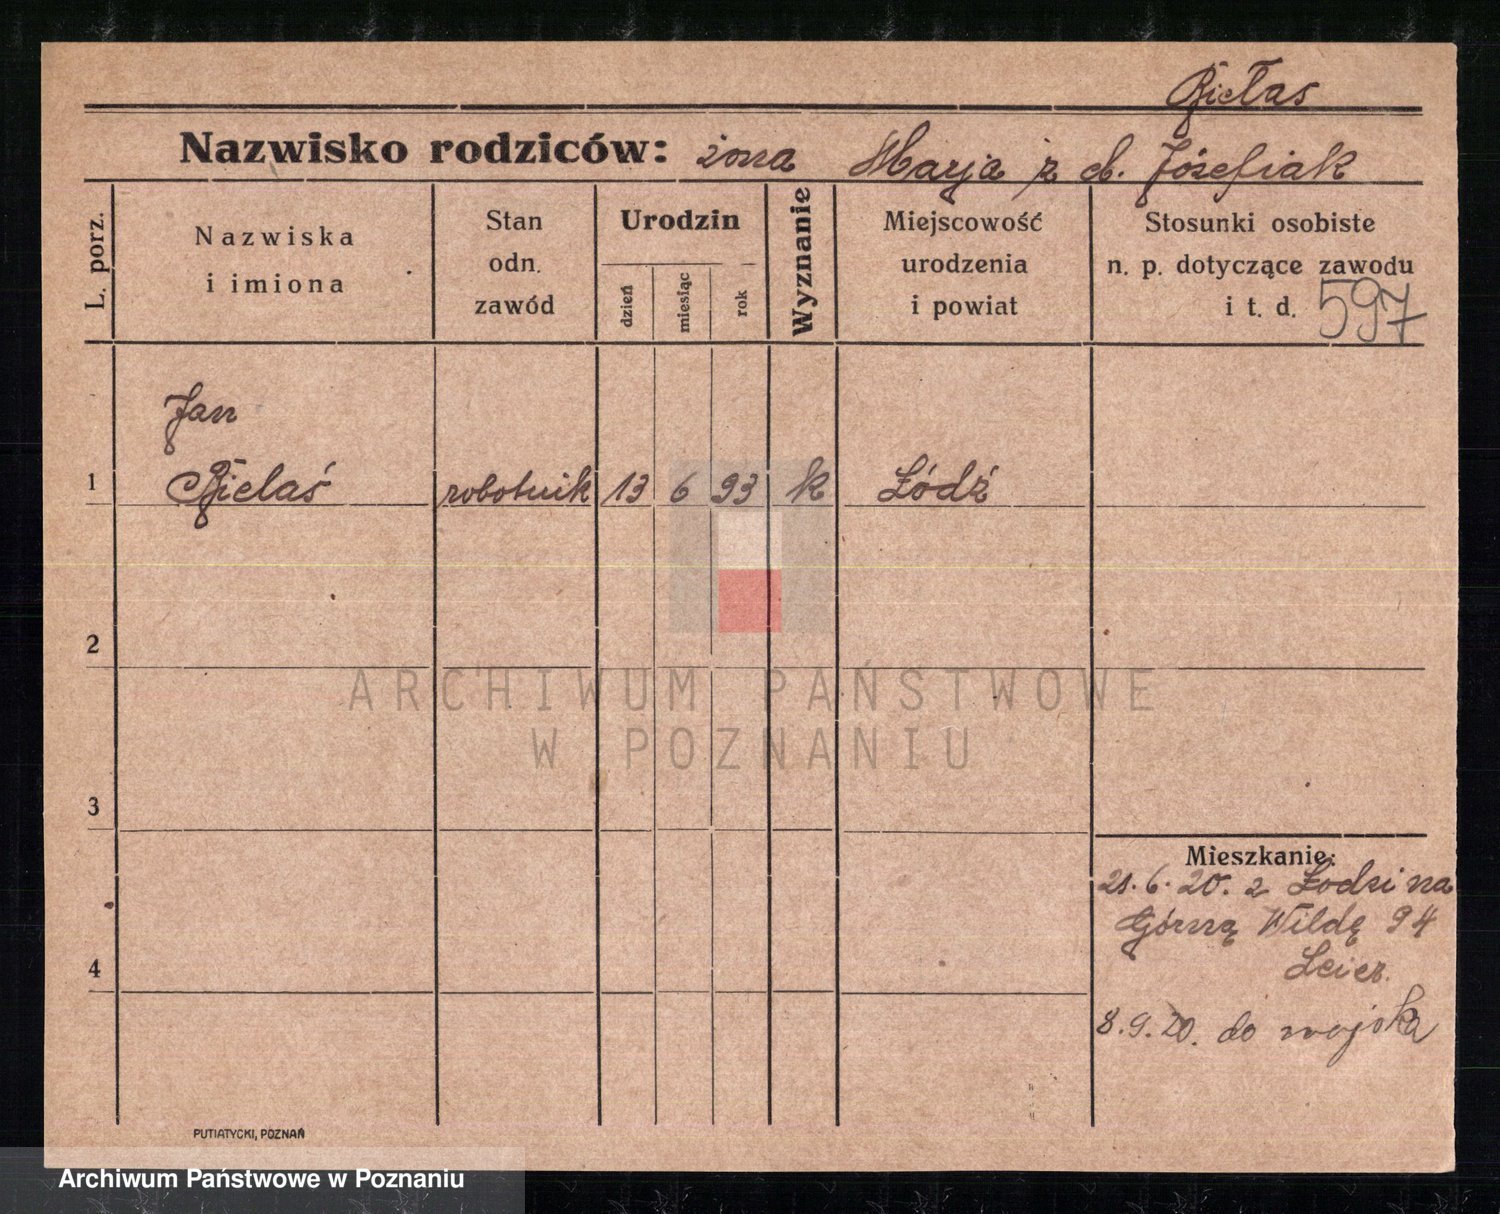 Biełas
Nazwisko rodziców: żona Marja z d. Józefiak
L. porz.
Nazwiska
i imiona
Stan
odn.
zawód
Urodzin
dzień
miesiąc
rok
Wyznanie
Miejscowość
urodzenia
i powiat
Stosunki osobiste
n. p. dotyczące zawodu
i t. d. 597
Jan
1 Bielaś robotnik 13 6 93 k Łódź
2
ARCHIWUM PAŃSTWOWE
W POZNANIU
3
Mieszkanie:
21.6.20. z Łodzi na
Górną Wildę 94
4
8.9.20. do wojska
PUTIATYCKI, POZNAŃ
Archiwum Państwowe w Poznaniu